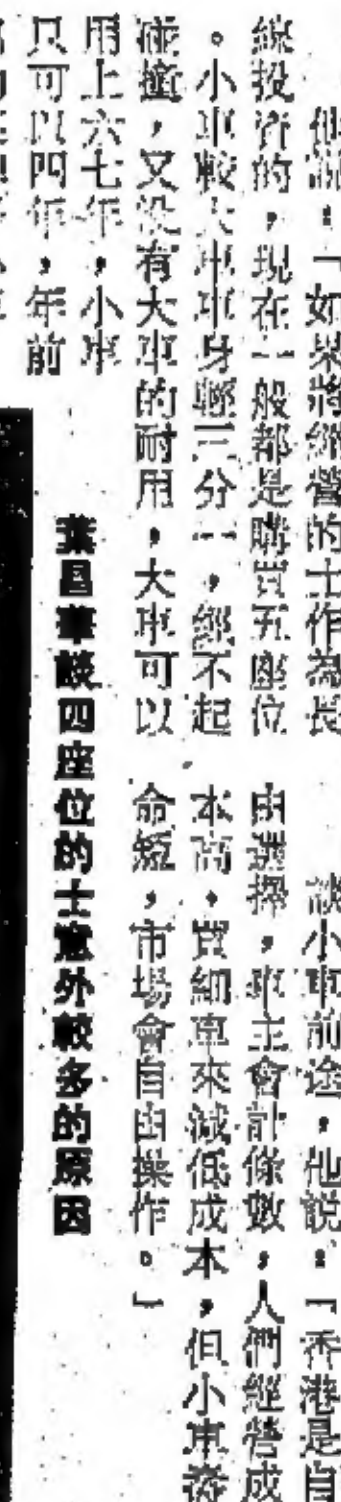 他說：「如果將經營的士作為長
線投資的，現在一般都是購買五座位
。小車較大車車身輕三分一，經不起
碰撞，又沒有大車的耐用，大車可以
用上六七年，小車
只可以四年，年前
談小車前途，他說：「香港是自
由選擇，車主會計條數，人們經營成
本高，買細車來減低成本，但小車壽
命短，市場會自由操作。」
葉昌華談四座位的士意外較多的原因